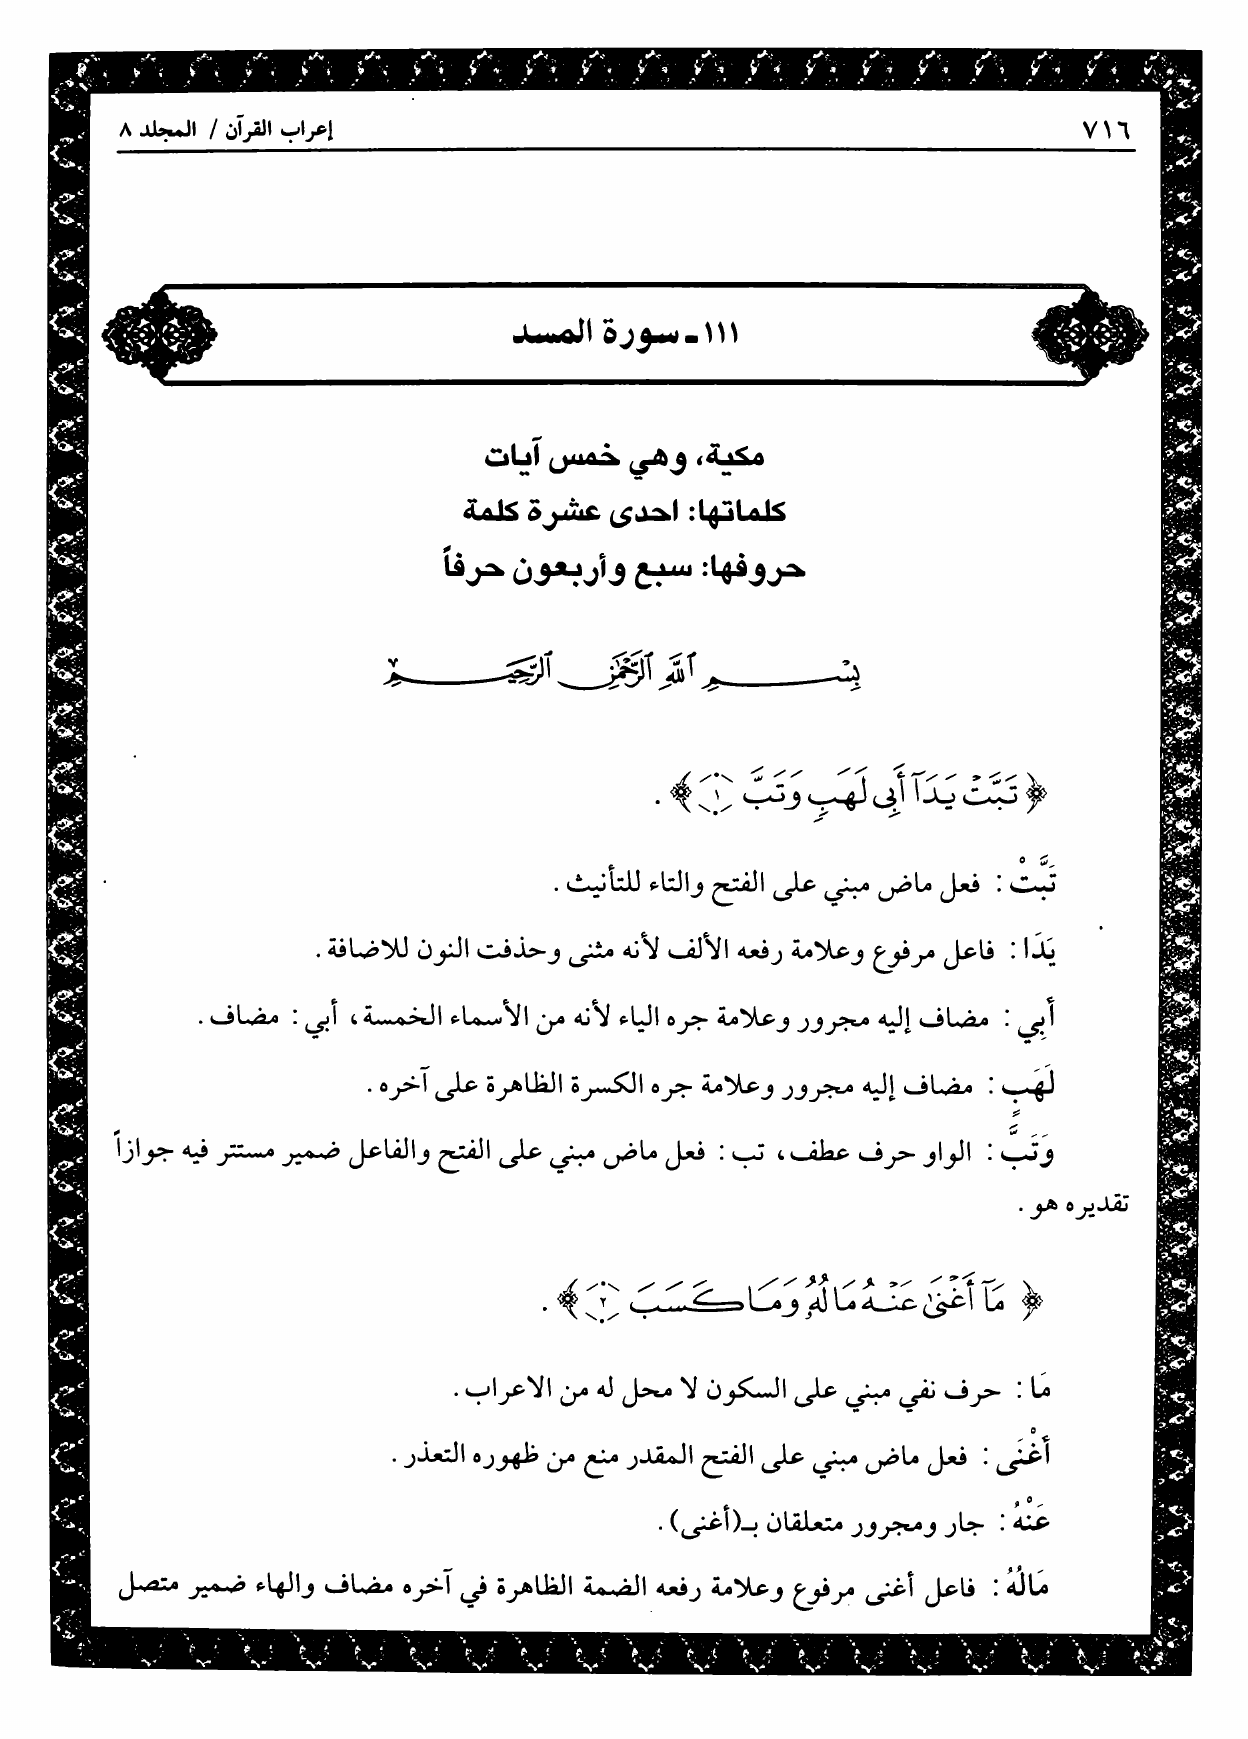 ٧١٦
إعراب القرآن / المجلد ٨
١١١ - سورة المسد
مكية، وهي خمس آيات
كلماتها: احدى عشرة كلمة
حروفها: سبع وأربعون حرفاً
بِسْمِ ٱللَّهِ ٱلرَّحْمَٰنِ ٱلرَّحِيمِ
﴿ تَبَّتْ يَدَآ أَبِى لَهَبٍ وَتَبَّ ١ ﴾ .
تَبَّتْ : فعل ماض مبني على الفتح والتاء للتأنيث .
يَدَا : فاعل مرفوع وعلامة رفعه الألف لأنه مثنى وحذفت النون للاضافة .
أَبِي : مضاف إليه مجرور وعلامة جره الياء لأنه من الأسماء الخمسة، أبي : مضاف .
لَهَبٍ : مضاف إليه مجرور وعلامة جره الكسرة الظاهرة على آخره .
وَتَبَّ : الواو حرف عطف، تب : فعل ماض مبني على الفتح والفاعل ضمير مستتر فيه جوازاً
تقديره هو .
﴿ مَآ أَغْنَىٰ عَنْهُ مَالُهُۥ وَمَا كَسَبَ ٢ ﴾ .
مَا : حرف نفي مبني على السكون لا محل له من الاعراب .
أَغْنَى : فعل ماض مبني على الفتح المقدر منع من ظهوره التعذر .
عَنْهُ : جار ومجرور متعلقان بـ(أغنى) .
مَالُهُ : فاعل أغنى مرفوع وعلامة رفعه الضمة الظاهرة في آخره مضاف والهاء ضمير متصل